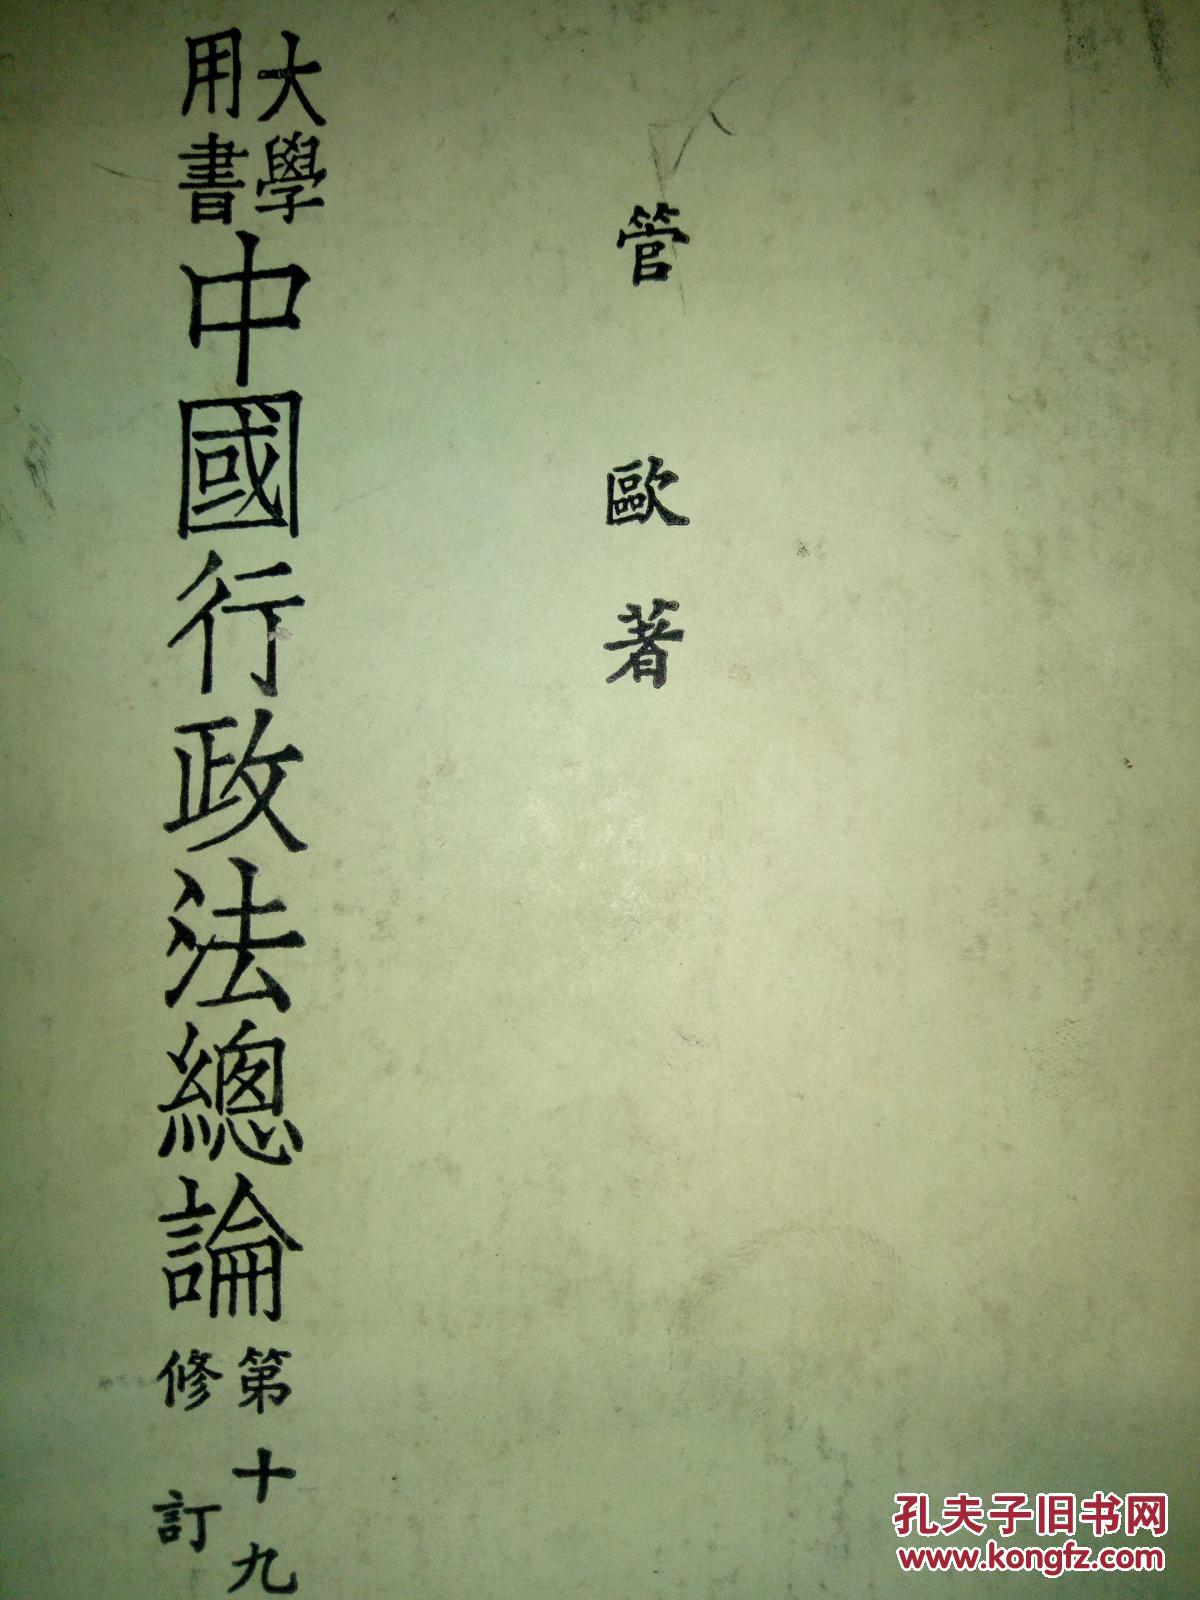 管歐著
大學
用書
中國行政法總論
第十九
修訂
孔夫子旧书网
www.kongfz.com